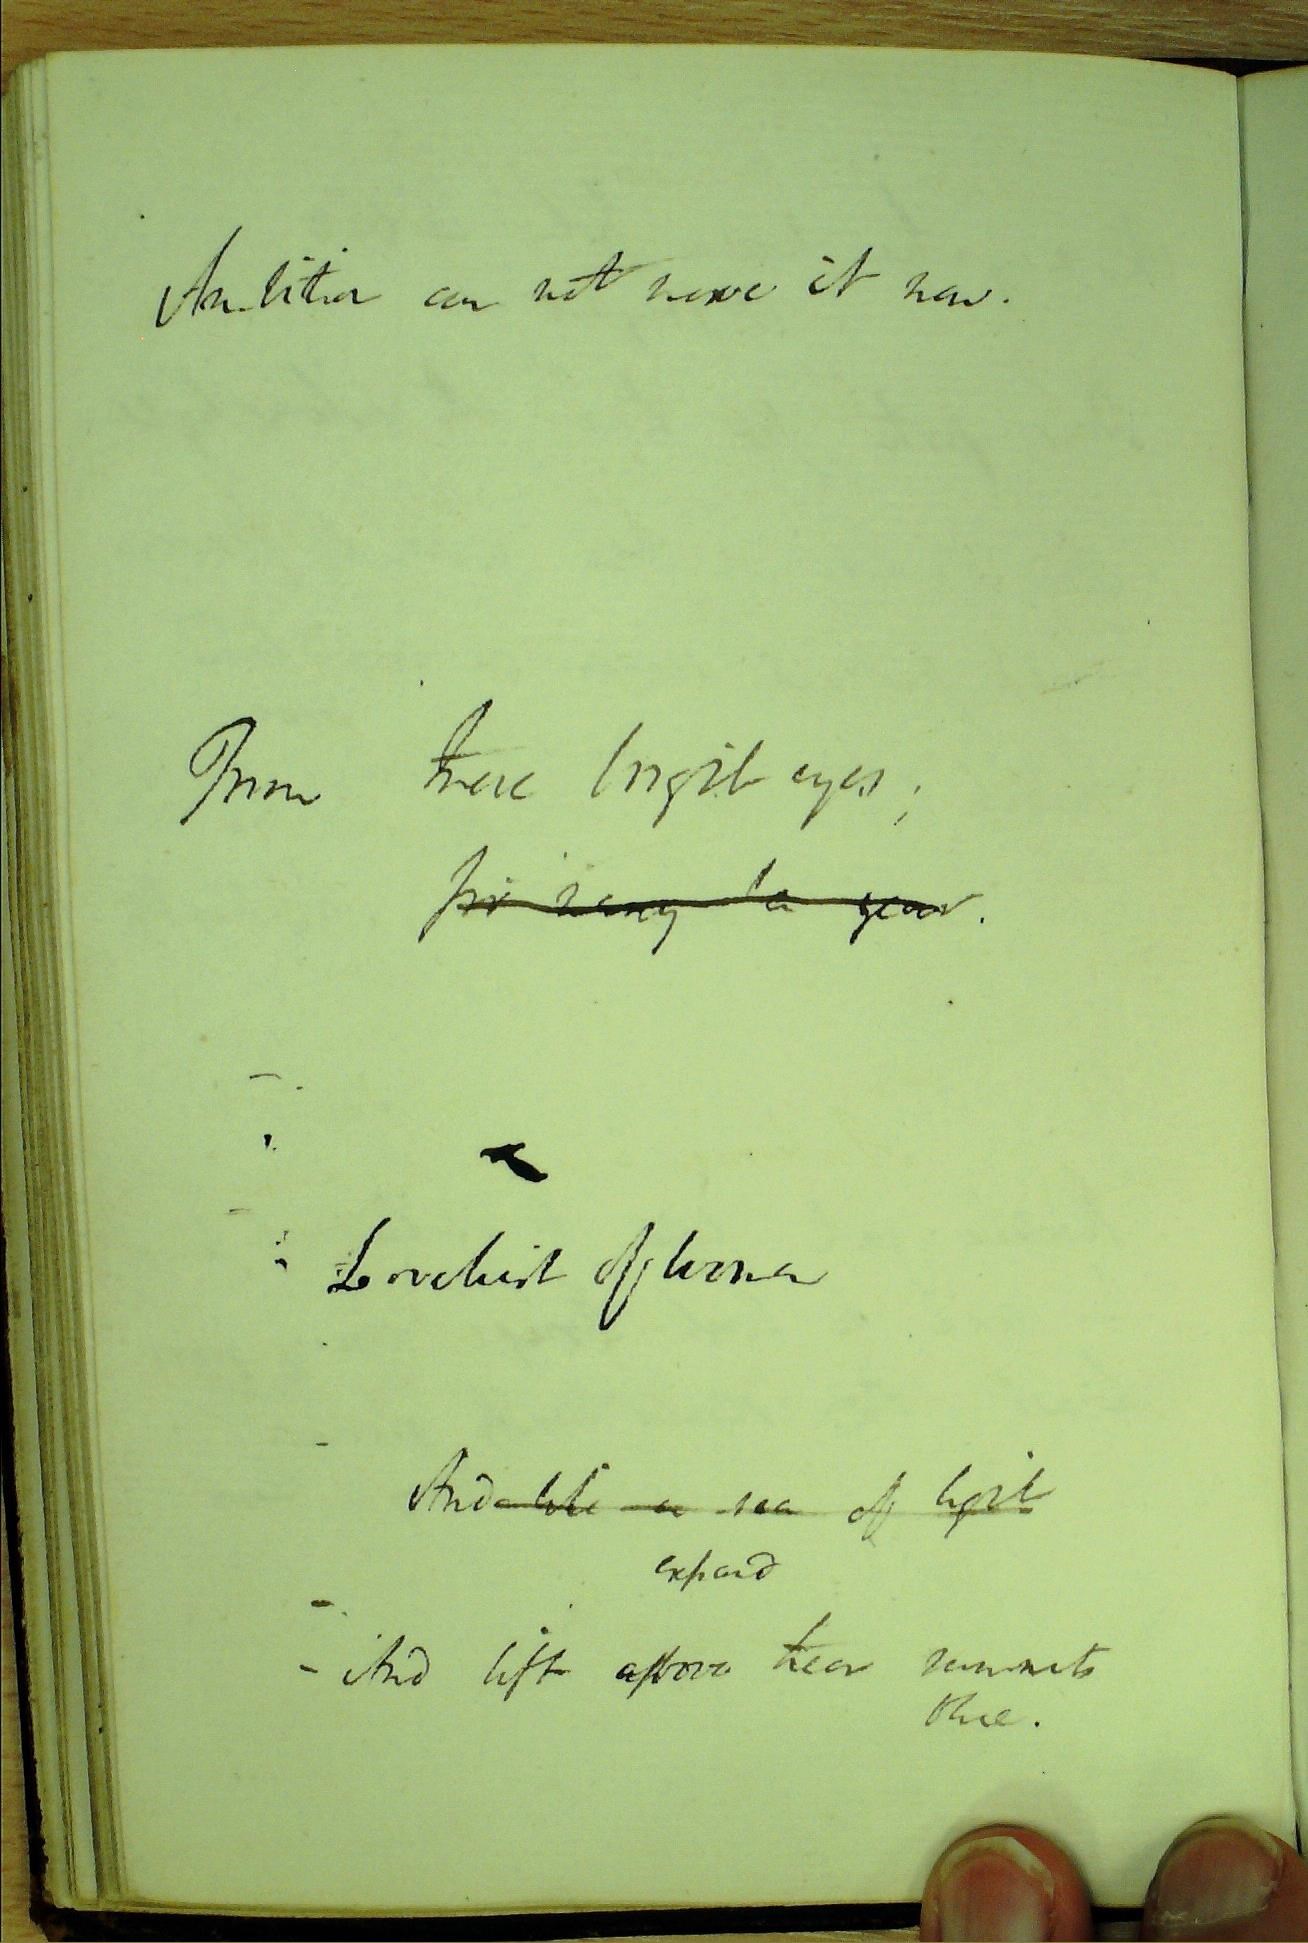 Ambition can not move it now.
From these bright eyes;
for many a year.
Loveliest of women
And like a sea of light
expand
And lift above their summits
blue.